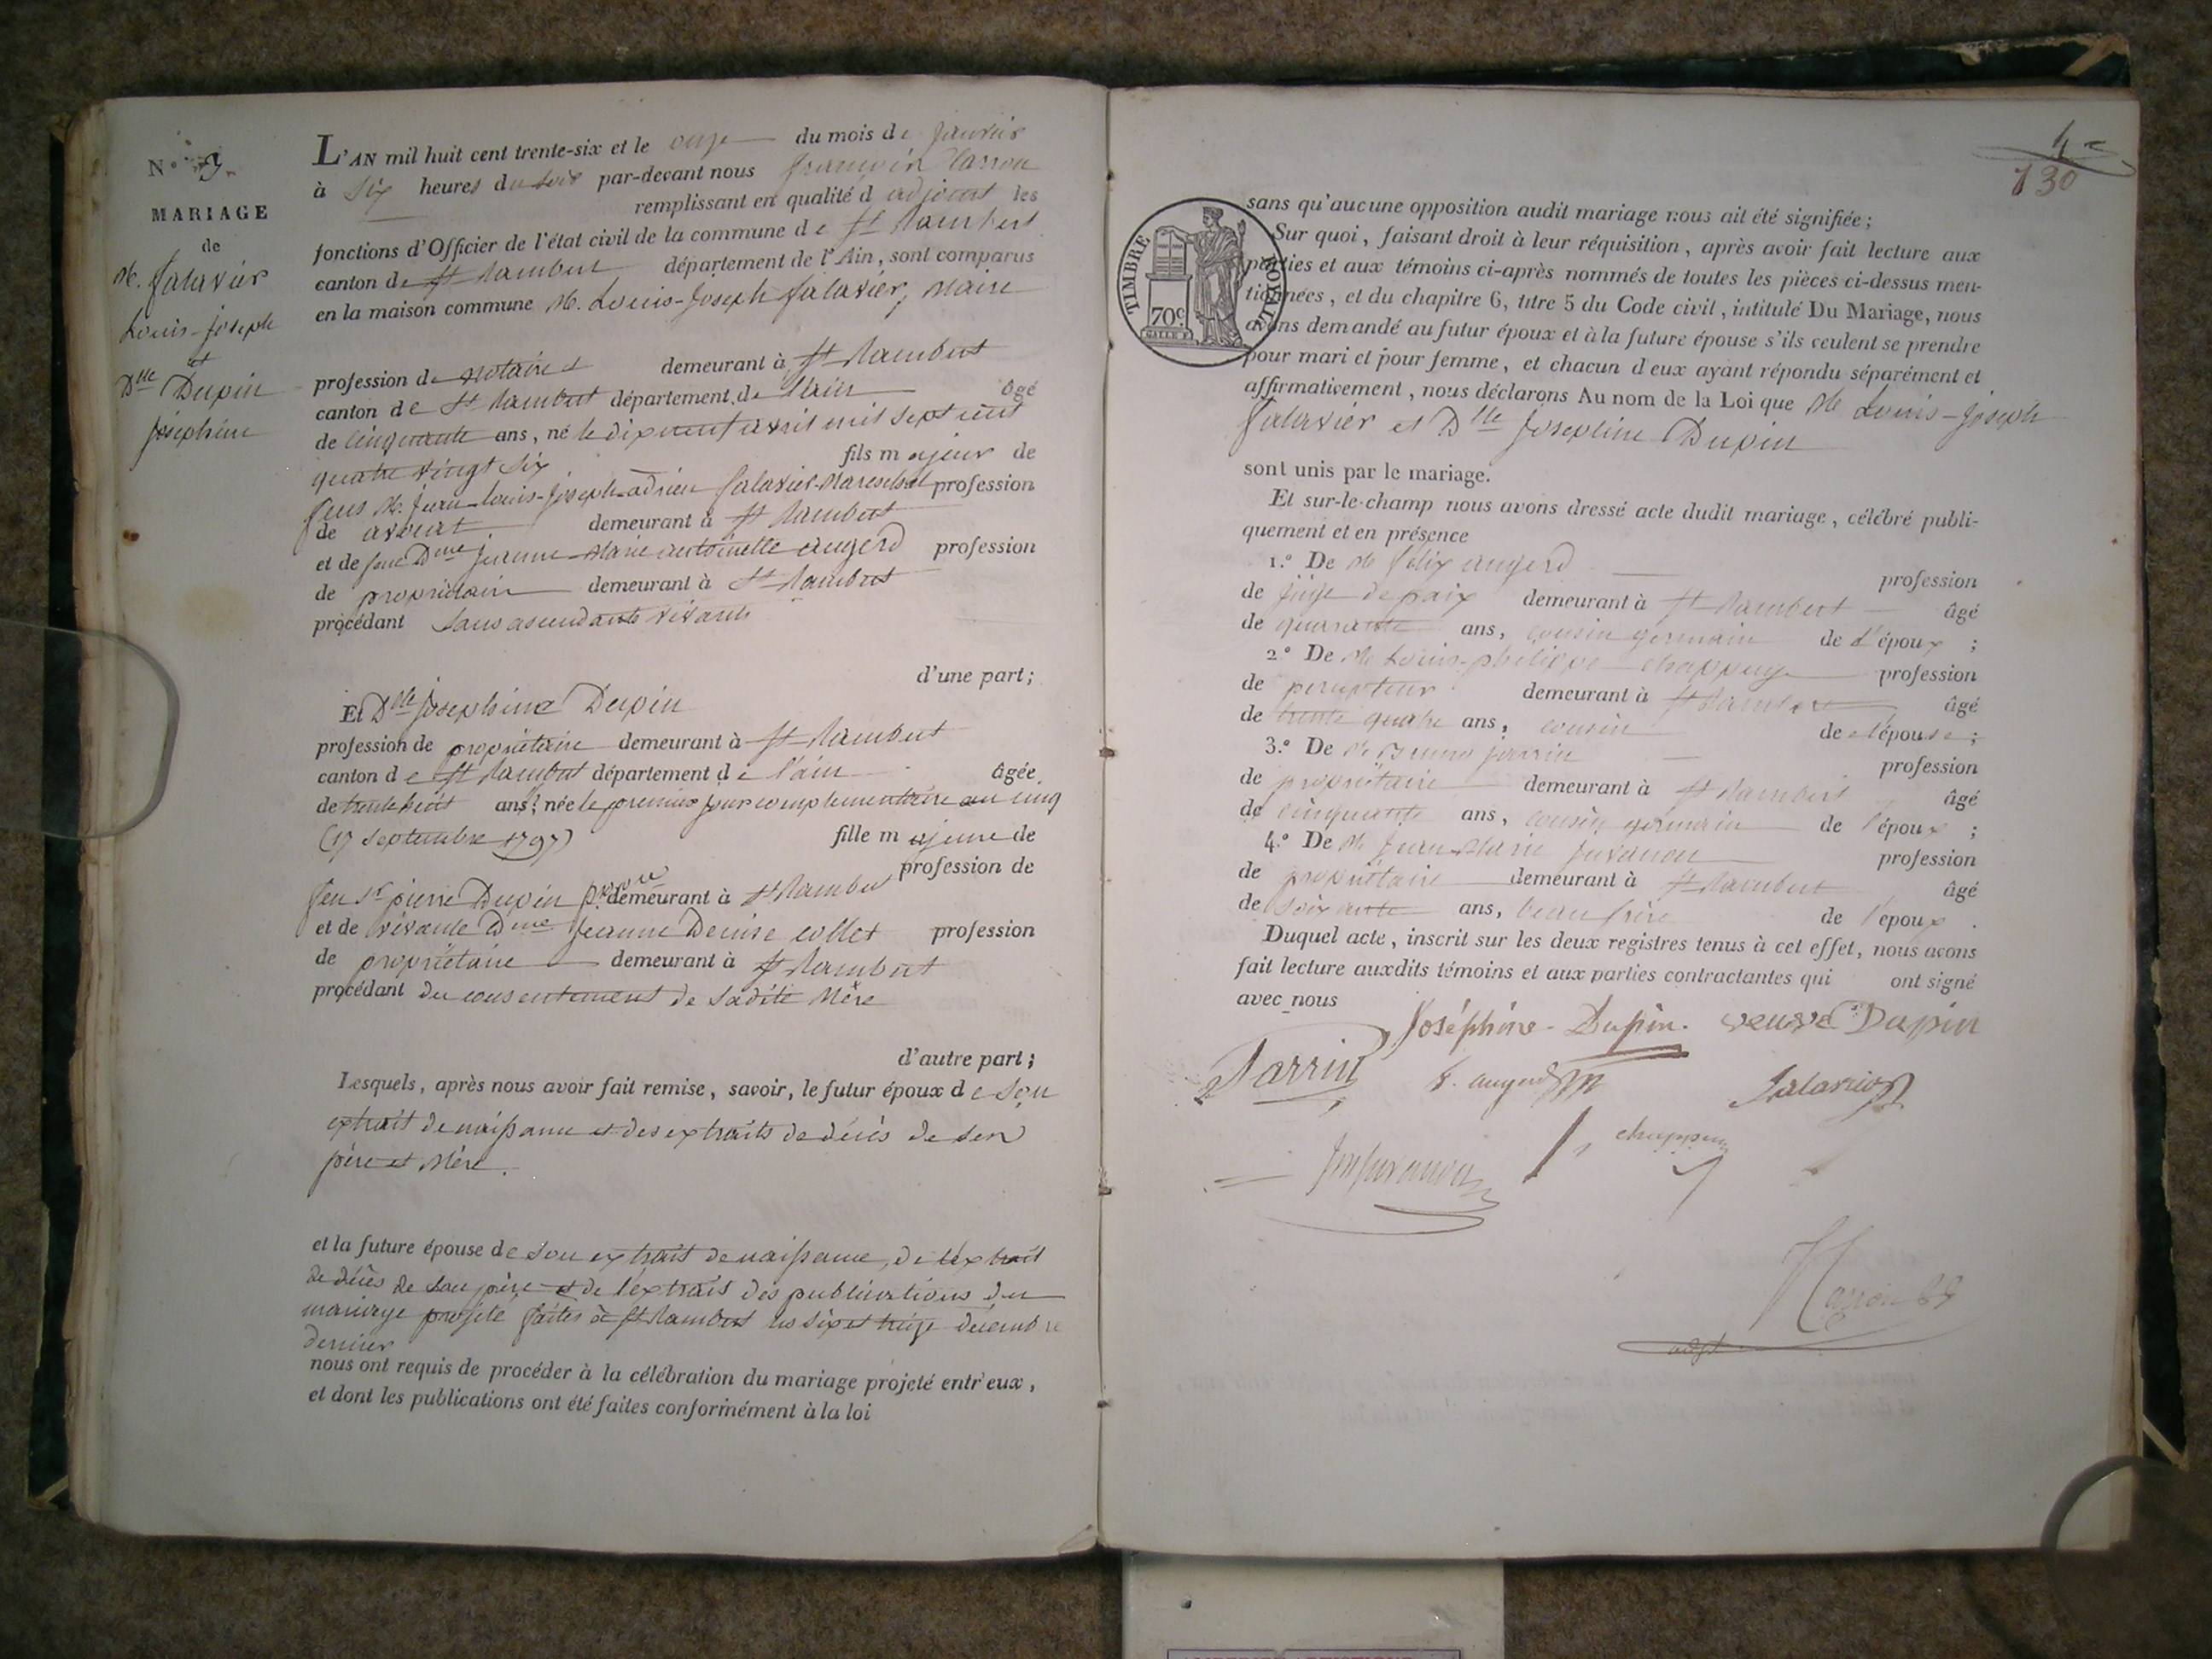 N° 3.
MARIAGE
de
M. Salavier
Louis-Joseph
et
Dlle Dupin
Joséphine
L'AN mil huit cent trente-six et le onze du mois de Janvier
à Six heures du soir par-devant nous françois
remplissant en qualité d'adjoint les
fonctions d'Officier de l'état civil de la commune de St Rambert
canton de St Rambert département de l'Ain, sont comparus
en la maison commune M. Louis-Joseph Salavier, Maire
profession de notaire demeurant à St Rambert
canton de St Rambert département de l'ain âgé
de cinquante ans, né le dix neuf avril mil sept cent
quatre vingt six fils majeur de
feus M. Jean-Louis-Joseph-adrien Salavier-Mareschal profession
de avocat demeurant à St Rambert
et de feue Dme Jeanne-Marie antoinette augerd profession
de propriétaire demeurant à St Rambert
procédant Sans ascendants vivants
d'une part;
Et Dlle Joséphine Dupin
profession de propriétaire demeurant à St Rambert
canton de St Rambert département de l'ain âgée
de trente huit ans, née le premier jour complémentaire an cinq
(17 Septembre 1797) fille majeure de
profession de
feu Sr pierre Dupin demeurant à St Rambert
et de vivante Dme Jeanne Denise collet profession
de propriétaire demeurant à St Rambert
procédant du consentement de Sadite Mère
d'autre part;
Lesquels, après nous avoir fait remise, savoir, le futur époux de Son
extrait de naissance et des extraits de décès de Son
père et Mère.
et la future épouse de Son extrait de naissance, de l'extrait
de décès de Son père et de l'extrait des publications du
mariage projeté faites à St Rambert les six et treize décembre
dernier
nous ont requis de procéder à la célébration du mariage projeté entr'eux,
et dont les publications ont été faites conformément à la loi
4
130
TIMBRE ROYAL
70c
sans qu'aucune opposition audit mariage nous ait été signifiée;
Sur quoi, faisant droit à leur réquisition, après avoir fait lecture aux
parties et aux témoins ci-après nommés de toutes les pièces ci-dessus men-
tionnées, et du chapitre 6, titre 5 du Code civil, intitulé Du Mariage, nous
avons demandé au futur époux et à la future épouse s'ils veulent se prendre
pour mari et pour femme, et chacun d'eux ayant répondu séparément et
affirmativement, nous déclarons Au nom de la Loi que M. Louis-Joseph
Salavier et Dlle Joséphine Dupin
sont unis par le mariage.
Et sur-le-champ nous avons dressé acte dudit mariage, célébré publi-
quement et en présence
1.° De M. félix augerd profession
de juge de paix demeurant à St Rambert âgé
de quarante ans, cousin germain de l'époux;
2.° De M. Louis-philippe chappuy profession
de percepteur demeurant à St Rambert âgé
de trente quatre ans, cousin de l'épouse;
3.° De M. Bruno jarrin profession
de propriétaire demeurant à St Rambert âgé
de cinquante ans, cousin germain de l'époux;
4.° De M. Jean-Marie Juvanon profession
de propriétaire demeurant à St Rambert âgé
de soixante ans, beau frère de l'époux.
Duquel acte, inscrit sur les deux registres tenus à cet effet, nous avons
fait lecture auxdits témoins et aux parties contractantes qui ont signé
avec nous
Joséphine Dupin. veuve Dupin
Jarrin f. augerd Salavier
Juvanon chappuy
adjt